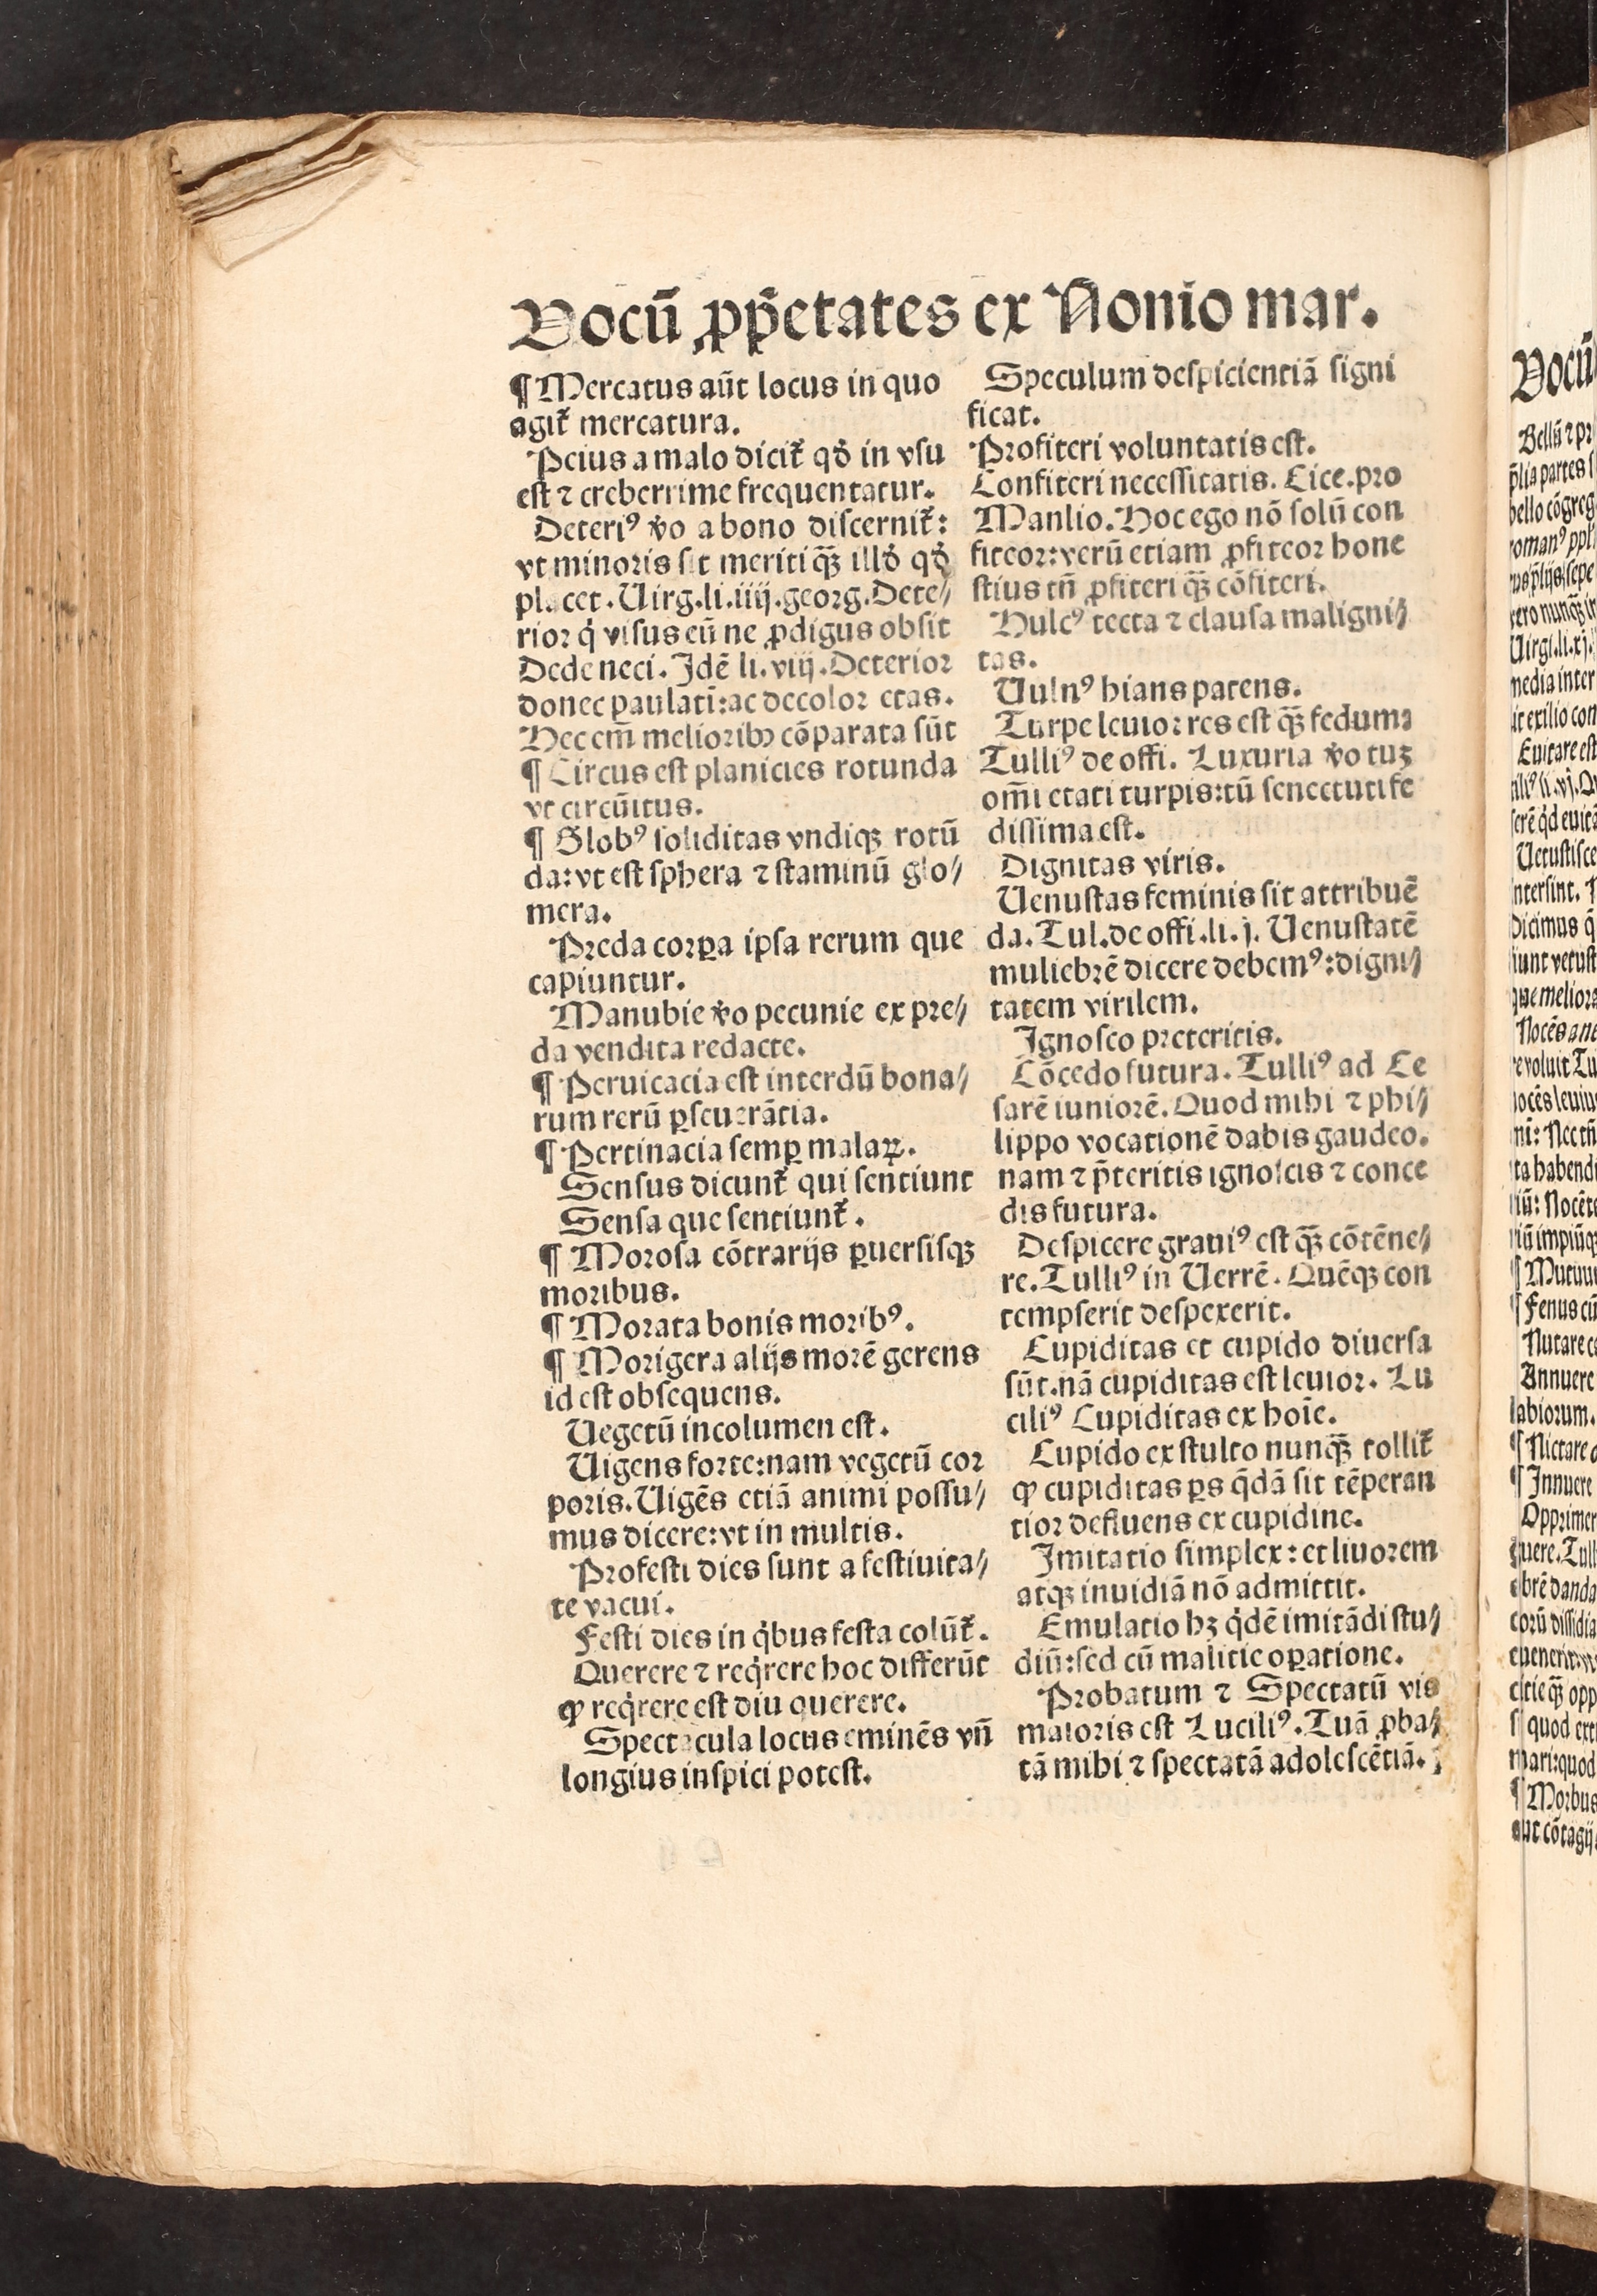 Vocū ꝓp̄etates ex Nonio mar.
¶ Mercatus aūt locus in quo
agit᷑ mercatura.
Peius a malo dicit᷑ qđ in vſu
eſt ⁊ creberrime frequentatur.
Deteriꝰ v̊o a bono diſcernit᷑:
vt minoris ſit meriti qꝫ̄ illđ qđ
placet. Uirg. li. iiij. georg. Dete⸗
rior q̇ viſus eū ne ꝓdigus obſit
Dede neci. Idē li. viij. Deterior
donec paulati̅: ac decolor etas.
Hec em̄ melioribꝫ cōparata ſūt
¶ Circus eſt planicies rotunda
vt circūitus.
¶ Globꝰ ſoliditas vndiqꝫ rotū
da: vt eſt ſphera ⁊ ſtaminū glo⸗
mera.
Preda corꝑa ipſa rerum que
capiuntur.
Manubie v̊o pecunie ex pre⸗
da vendita redacte.
¶ Peruicacia eſt interdū bona⸗
rum rerū ꝑſeuerātia.
¶ Pertinacia ſemꝑ malaꝝ.
Senſus dicunt᷑ qui ſentiunt
Senſa que ſentiunt᷑.
¶ Moroſa cōtrarijs ꝑuerſiſqꝫ
moribus.
¶ Morata bonis moribꝰ.
¶ Morigera alijs morē gerens
id eſt obſequens.
Uegetū incolumen eſt.
Uigens forte: nam vegetū cor
poris. Uigēs etiā animi poſſu⸗
mus dicere: vt in multis.
Profeſti dies ſunt a feſtiuita⸗
te vacui.
Feſti dies in q̇bus feſta colūt᷑.
Querere ⁊ req̇rere hoc differūt
ꝙ req̇rere eſt diu querere.
Spectacula locus eminēs vn̄
longius inſpici poteſt.
Speculum deſpicientiā ſigni
ficat.
Profiteri voluntatis eſt.
Confiteri neceſſitatis. Cice. pro
Manlio. Hoc ego nō ſolū con
fiteor: verū etiam ꝓfiteor hone
ſtius tn̄ ꝓfiteri qꝫ̄ cōfiteri.
Hulcꝰ tecta ⁊ clauſa maligni⸗
tas.
Uulnꝰ hians patens.
Turpe leuior res eſt qꝫ̄ fedum:
Tulliꝰ de offi. Luxuria v̊o tuꝫ
om̄i etati turpis: tū ſenectuti fe
diſſima eſt.
Dignitas viris.
Uenuſtas feminis ſit attribuē
da. Tul. de offi. li. j. Uenuſtatē
muliebrē dicere debemꝰ: digni⸗
tatem virilem.
Ignoſco preteritis.
Cōcedo futura. Tulliꝰ ad Ce
ſarē iuniorē. Quod mihi ⁊ phi⸗
lippo vocationē dabis gaudeo.
nam ⁊ p̄teritis ignoſcis ⁊ conce
dis futura.
Deſpicere grauiꝰ eſt qꝫ̄ cōtēne⸗
re. Tulliꝰ in Uerrē. Quēqꝫ con
tempſerit deſpexerit.
Cupiditas et cupido diuerſa
ſūt. nā cupiditas eſt leuior. Lu
ciliꝰ Cupiditas ex hoīe.
Cupido ex ſtulto nunqꝫ̄ tollit᷑
ꝙ cupiditas ꝑs q̄dā ſit tēperan
tior defluens ex cupidine.
Imitatio ſimplex: et liuorem
atqꝫ inuidiā nō admittit.
Emulatio hꝫ q̇dē imitādi ſtu⸗
diū: ſed cū malitie oꝑatione.
Probatum ⁊ Spectatū vis
maioris eſt Luciliꝰ. Tuā ꝓba⸗
tā mihi ⁊ ſpectatā adoleſcētiā.